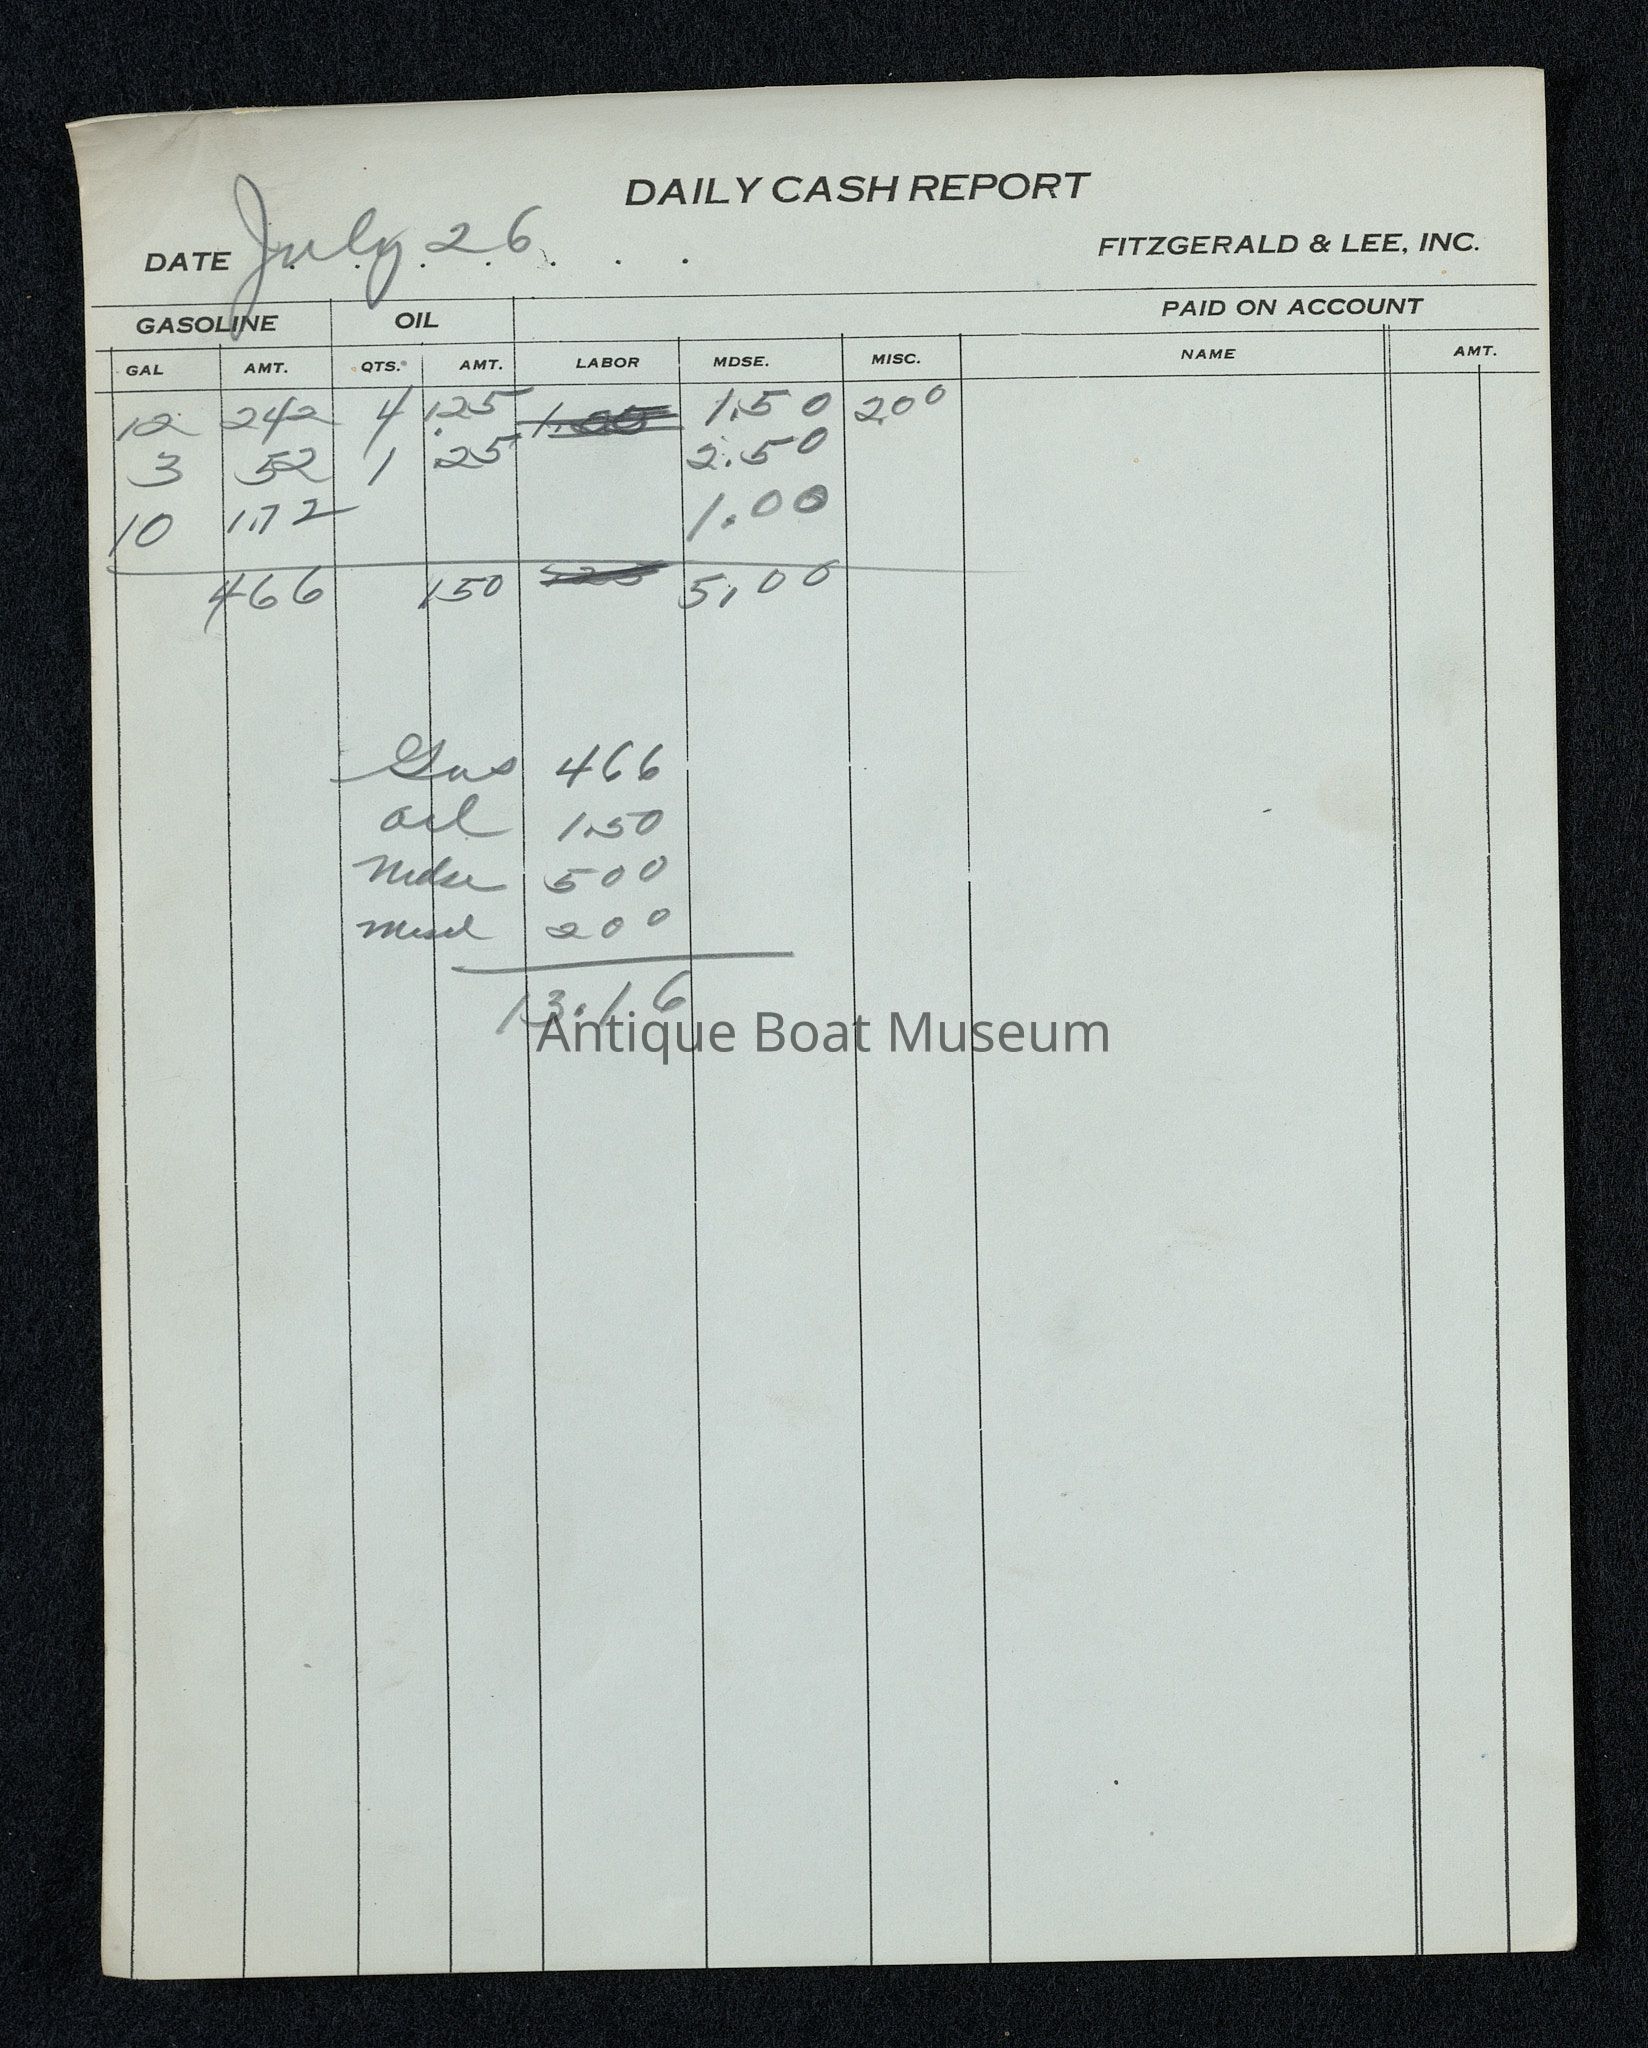 DAILY CASH REPORT
DATE July 26
FITZGERALD & LEE, INC.
GASOLINE OIL PAID ON ACCOUNT
GAL AMT. QTS. AMT. LABOR MDSE. MISC. NAME AMT.
12 242 4 1.25 1.50 2.00
3 52 1 .25 2.50
10 1.72 1.00
466 1.50 5.00
Gas 466
Oil 1.50
Mdse 500
Misl 200
13.16
Antique Boat Museum